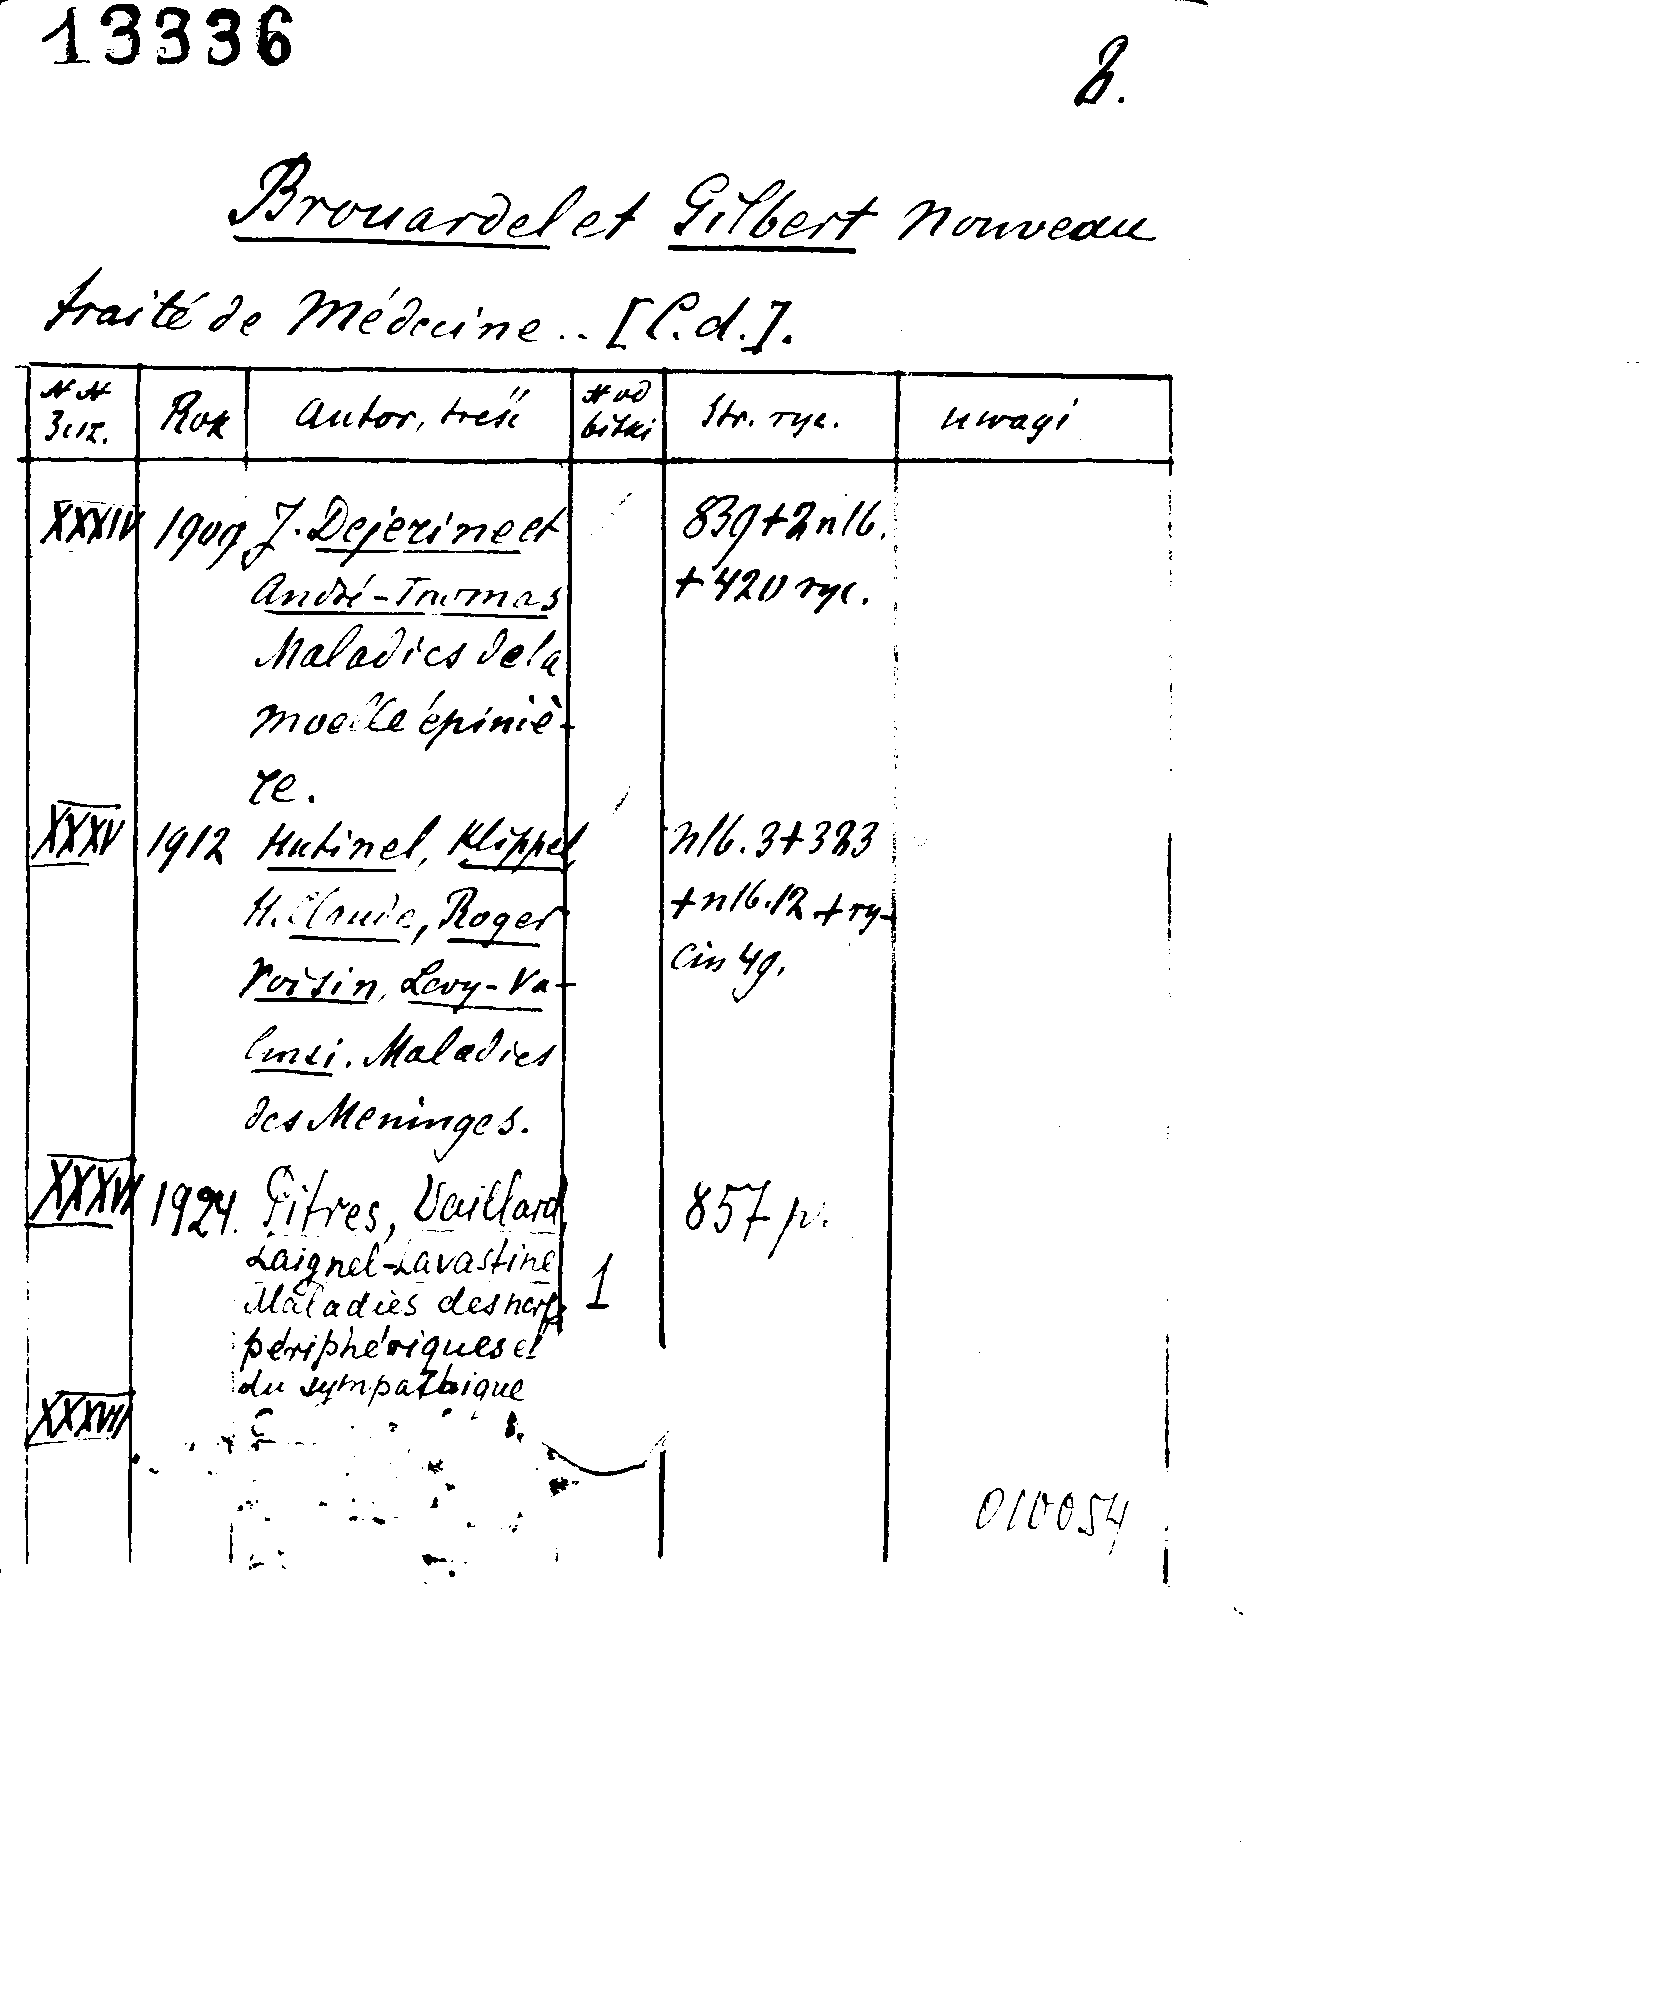 13336
8.
Brouardel et Gilbert Nouveau
traité de Médecine .. [C.d.].
NN
Zesz.
Rok
Autor, treść
N od
bitki
Str. ryc.
uwagi
XXXIV 1909 J. Dejerine et 839+2nlb.
André-Thomas +420 ryc.
Maladies de la
moelle épiniè-
re.
XXXV 1912 Hutinel, Klippel, nlb. 3+383
H. Claude, Roger +nlb.12+ry-
Voisin, Levy-Va- cin 49.
lensi. Maladies
des Meninges.
XXXVI 1924. Pitres, Vaillard, 857 p.
Laignel-Lavastine
Maladies des nerfs 1
périphériques et
du sympathique
XXXVII
010054